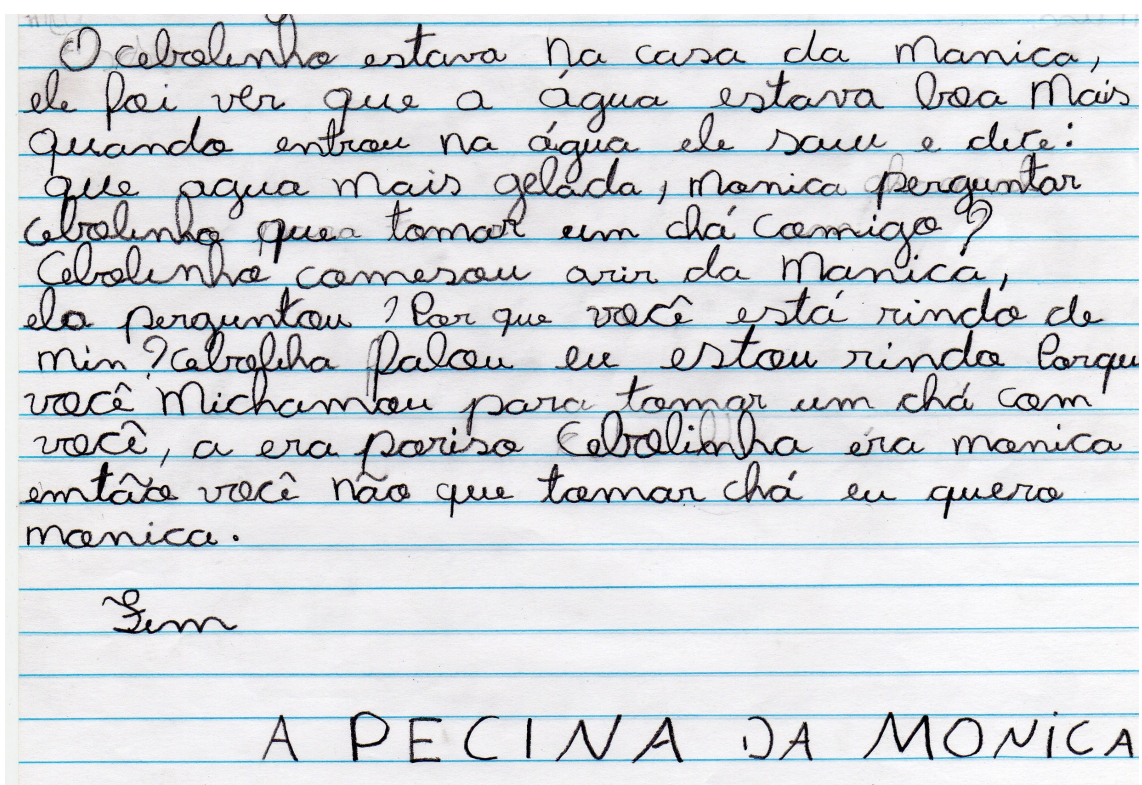 O cebolinho estava na casa da Manica,
ele foi ver que a água estava boa Mais
quando entrou na água ele saiu e dice:
que agua mais gelada, monica perguntar
cebolinho quea tomar um chá comigo?
Cebolinho comesou arir da Manica,
ela perguntou ? Por que você está rindo de
min? cebolha falou eu estou rindo Porqu
você Michamou para tomar um chá com
você, a era pariso Cebolinha era monica
emtão você não que tomar chá eu quero
monica.
Fim
A PECINA DA MONICA